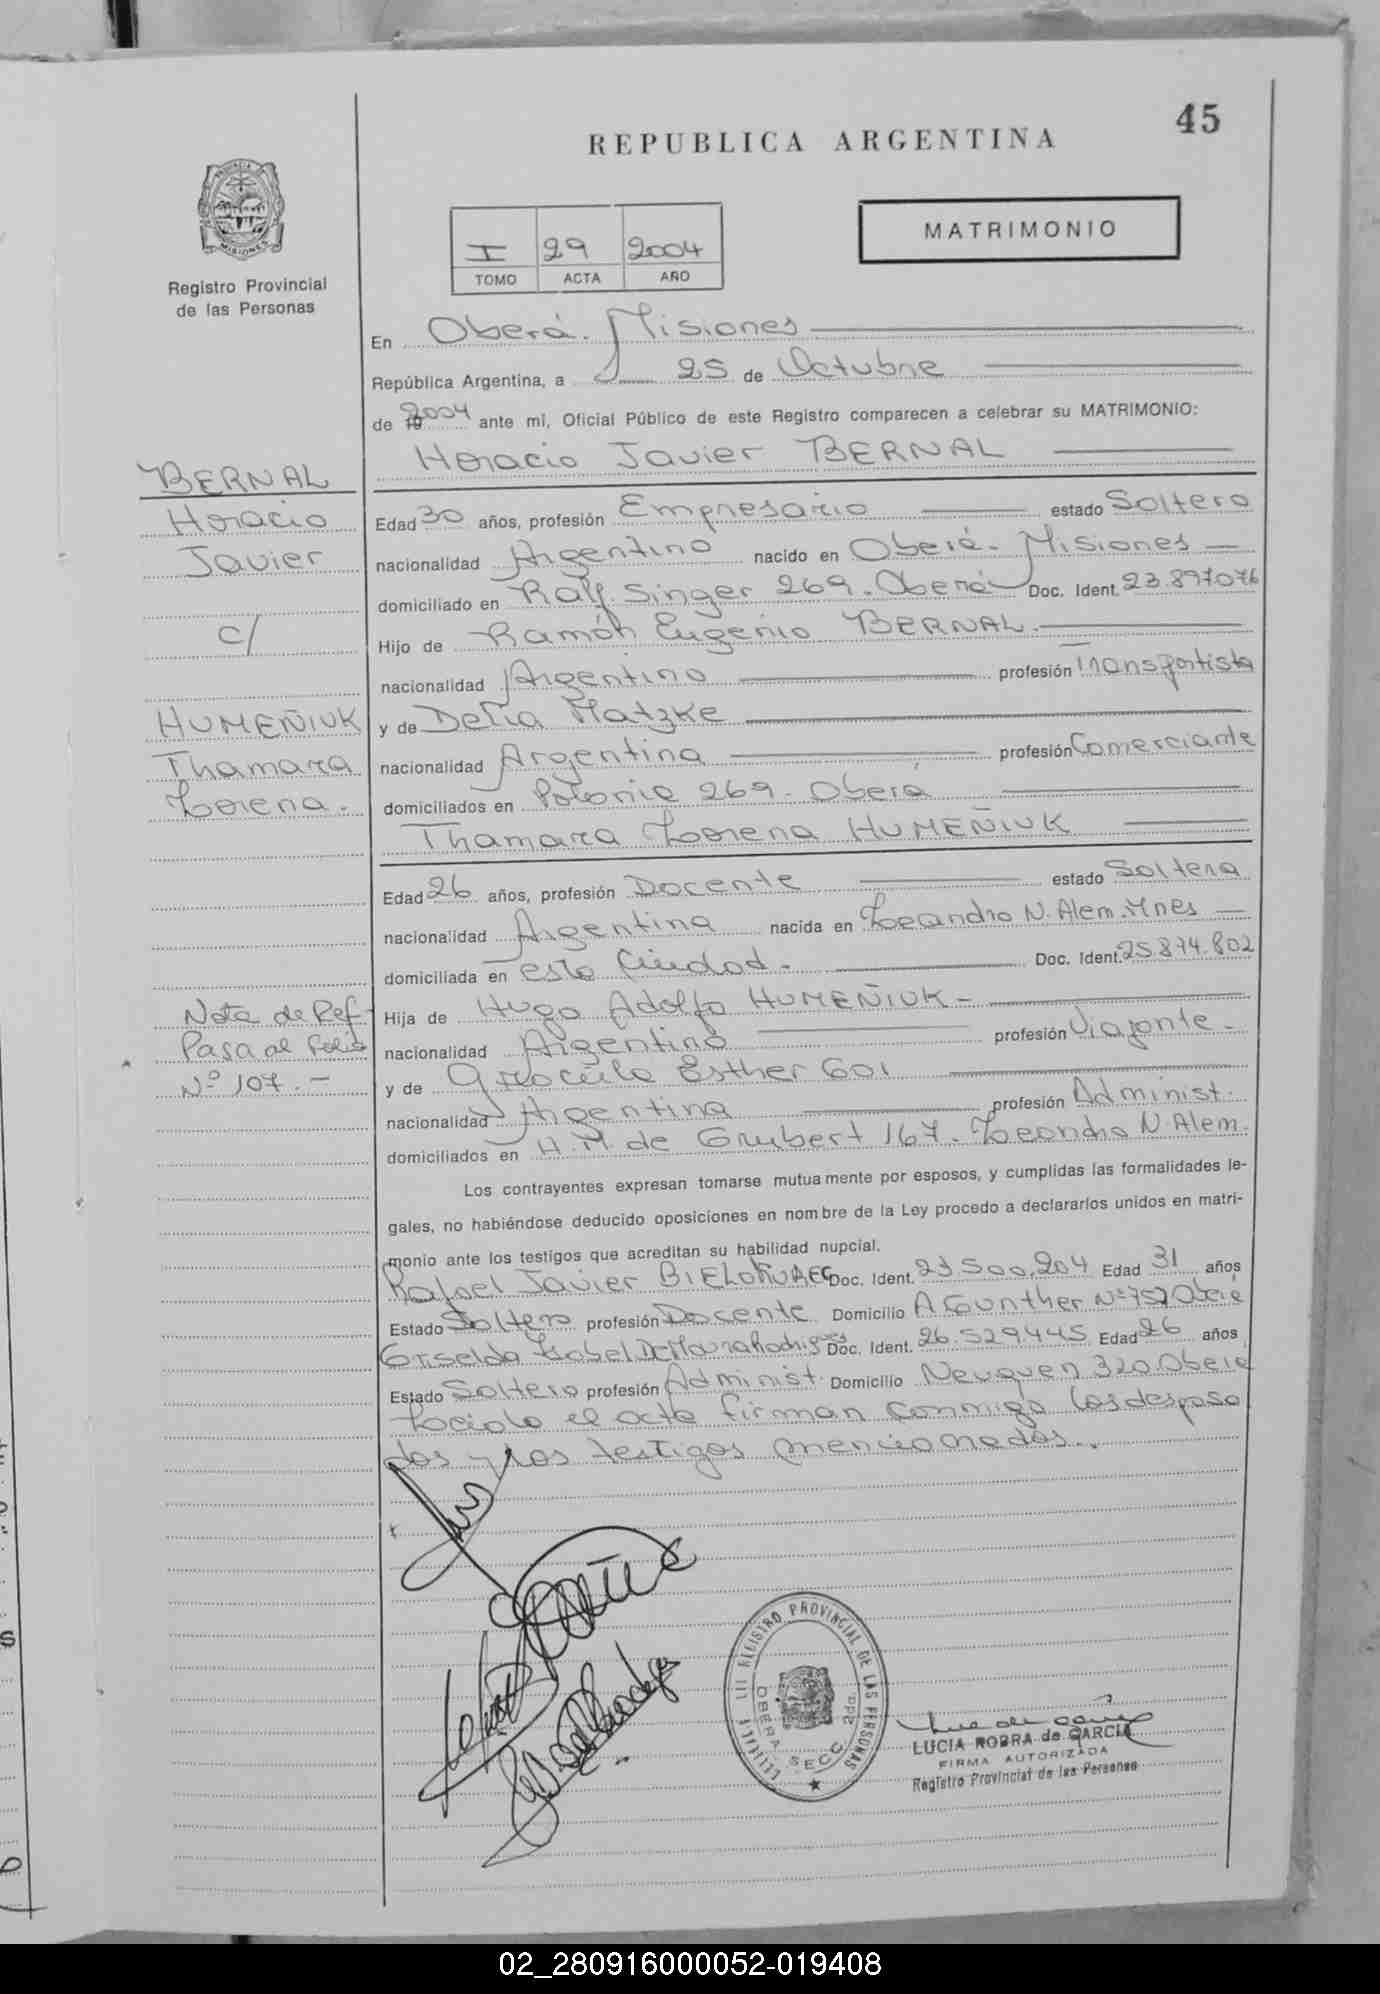 45
REPUBLICA ARGENTINA
PROVINCIA DE
MISIONES
Registro Provincial
de las Personas
I 29 2004
TOMO ACTA AÑO
MATRIMONIO
En Oberá. Misiones
República Argentina, a 25 de Octubre
de 2004 ante mi, Oficial Público de este Registro comparecen a celebrar su MATRIMONIO:
Horacio Javier BERNAL
BERNAL
Horacio
Javier
c/
HUMEÑIUK
Thamara
Lorena.
Edad 30 años, profesión Empresario estado Soltero
nacionalidad Argentino nacido en Oberá. Misiones
domiciliado en Ralf. Singer 269. Oberá Doc. Ident. 23.897076
Hijo de Ramón Eugenio BERNAL.
nacionalidad Argentino profesión Transportista
y de Delia Matzke
nacionalidad Argentina profesión Comerciante
domiciliados en Polonia 269. Oberá
Thamara Lorena HUMEÑIUK
Edad 26 años, profesión Docente estado Soltera
nacionalidad Argentina nacida en Leandro N. Alem. Mnes
domiciliada en esta Ciudad. Doc. Ident. 25.874.802
Hija de Hugo Adolfo HUMEÑIUK
nacionalidad Argentino profesión Viajante.
y de Esther
nacionalidad Argentina profesión Administ.
domiciliados en H. M. de Grubert 167. Leandro N. Alem.
Nota de Ref
Pasa al folio
Nº 107.-
Los contrayentes expresan tomarse mutuamente por esposos, y cumplidas las formalidades le-
gales, no habiéndose deducido oposiciones en nombre de la Ley procedo a declararlos unidos en matri-
monio ante los testigos que acreditan su habilidad nupcial.
Rafael Javier Doc. Ident. 23.500.204 Edad 31 años
Estado Soltero profesión Docente Domicilio A Gunther Nº 757 Oberá
Griselda Isabel De Moura Rodrigues Doc. Ident. 26.529.445 Edad 26 años
Estado Soltera profesión Administ. Domicilio Neuquen 320. Oberá
el acta firman conmigo los desposa
dos y los testigos mencionados.
REGISTRO PROVINCIAL DE LAS PERSONAS
OBERA SECC. 2da.
LUCIA ROBRA de GARCIA
FIRMA AUTORIZADA
Registro Provincial de las Personas
02_280916000052-019408